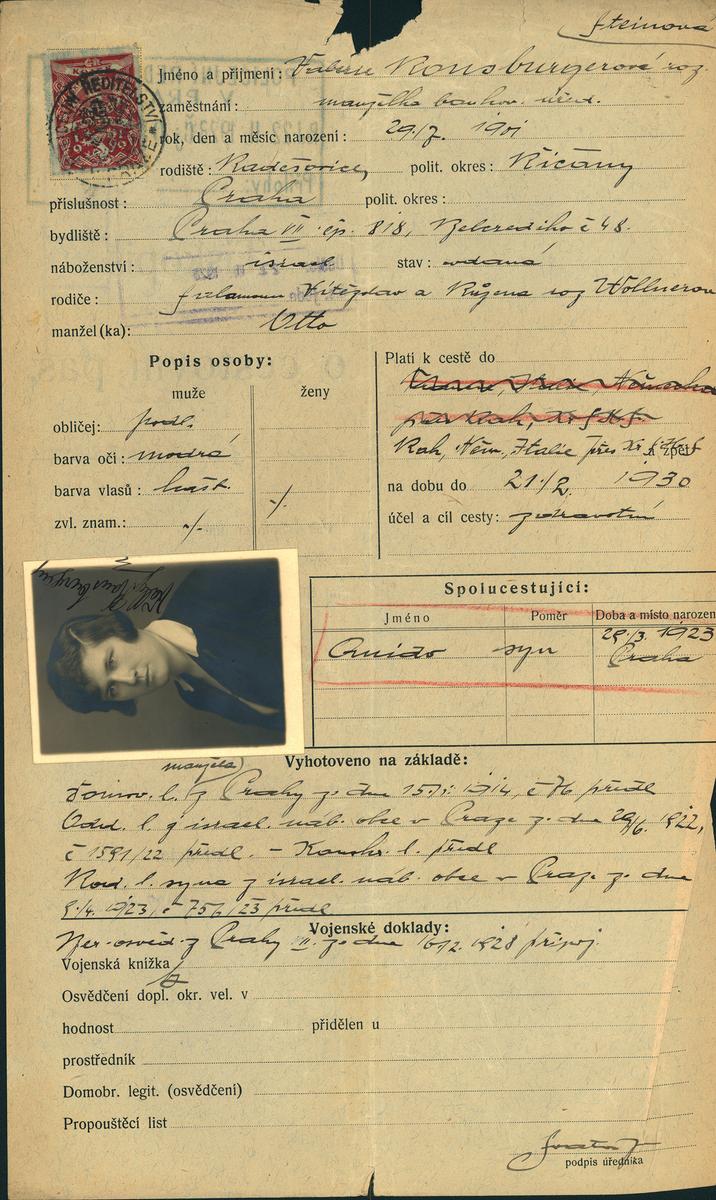 Steinová
Jméno a příjmení: Valerie Konsburgerová roz.
zaměstnání: manželka bankov. úřed.
rok, den a měsíc narození: 29./7. 1901
rodiště: Radešovice, polit. okres: Říčany
příslušnost: Praha polit. okres:
bydliště: Praha VII. čp. 818, Belcrediho č 48.
náboženství: israel. stav: vdaná
rodiče: Vítězslav a Růžena roz Wollnerov
manžel (ka): Otto
Popis osoby:
muže ženy
obličej: podl.
barva očí: modrá
barva vlasů: kašt.
zvl. znam.: ./. ./.
Platí k cestě do
Rak, Něm, Italie přes
na dobu do 21./2. 1930
účel a cíl cesty: zdravotní
Spolucestující:
Jméno Poměr Doba a místo narozen
Quido syn 29./3. 1923 Praha
Vyhotoveno na základě:
manžela
Domov. l. z Prahy ze dne 1914, č 76 předl
Odd. l. z israel. náb. obce v Praze ze dne 29/6. 1922,
č 1591/22 předl. – l. předl
Rod. l. syna z israel. náb. obce v Praze ze dne
9./4. 1923, č 756/23 předl
Vojenské doklady:
z Prahy ze dne 1928 připoj.
Vojenská knížka
Osvědčení dopl. okr. vel. v
hodnost přidělen u
prostředník
Domobr. legit. (osvědčení)
Propouštěcí list
podpis úředníka